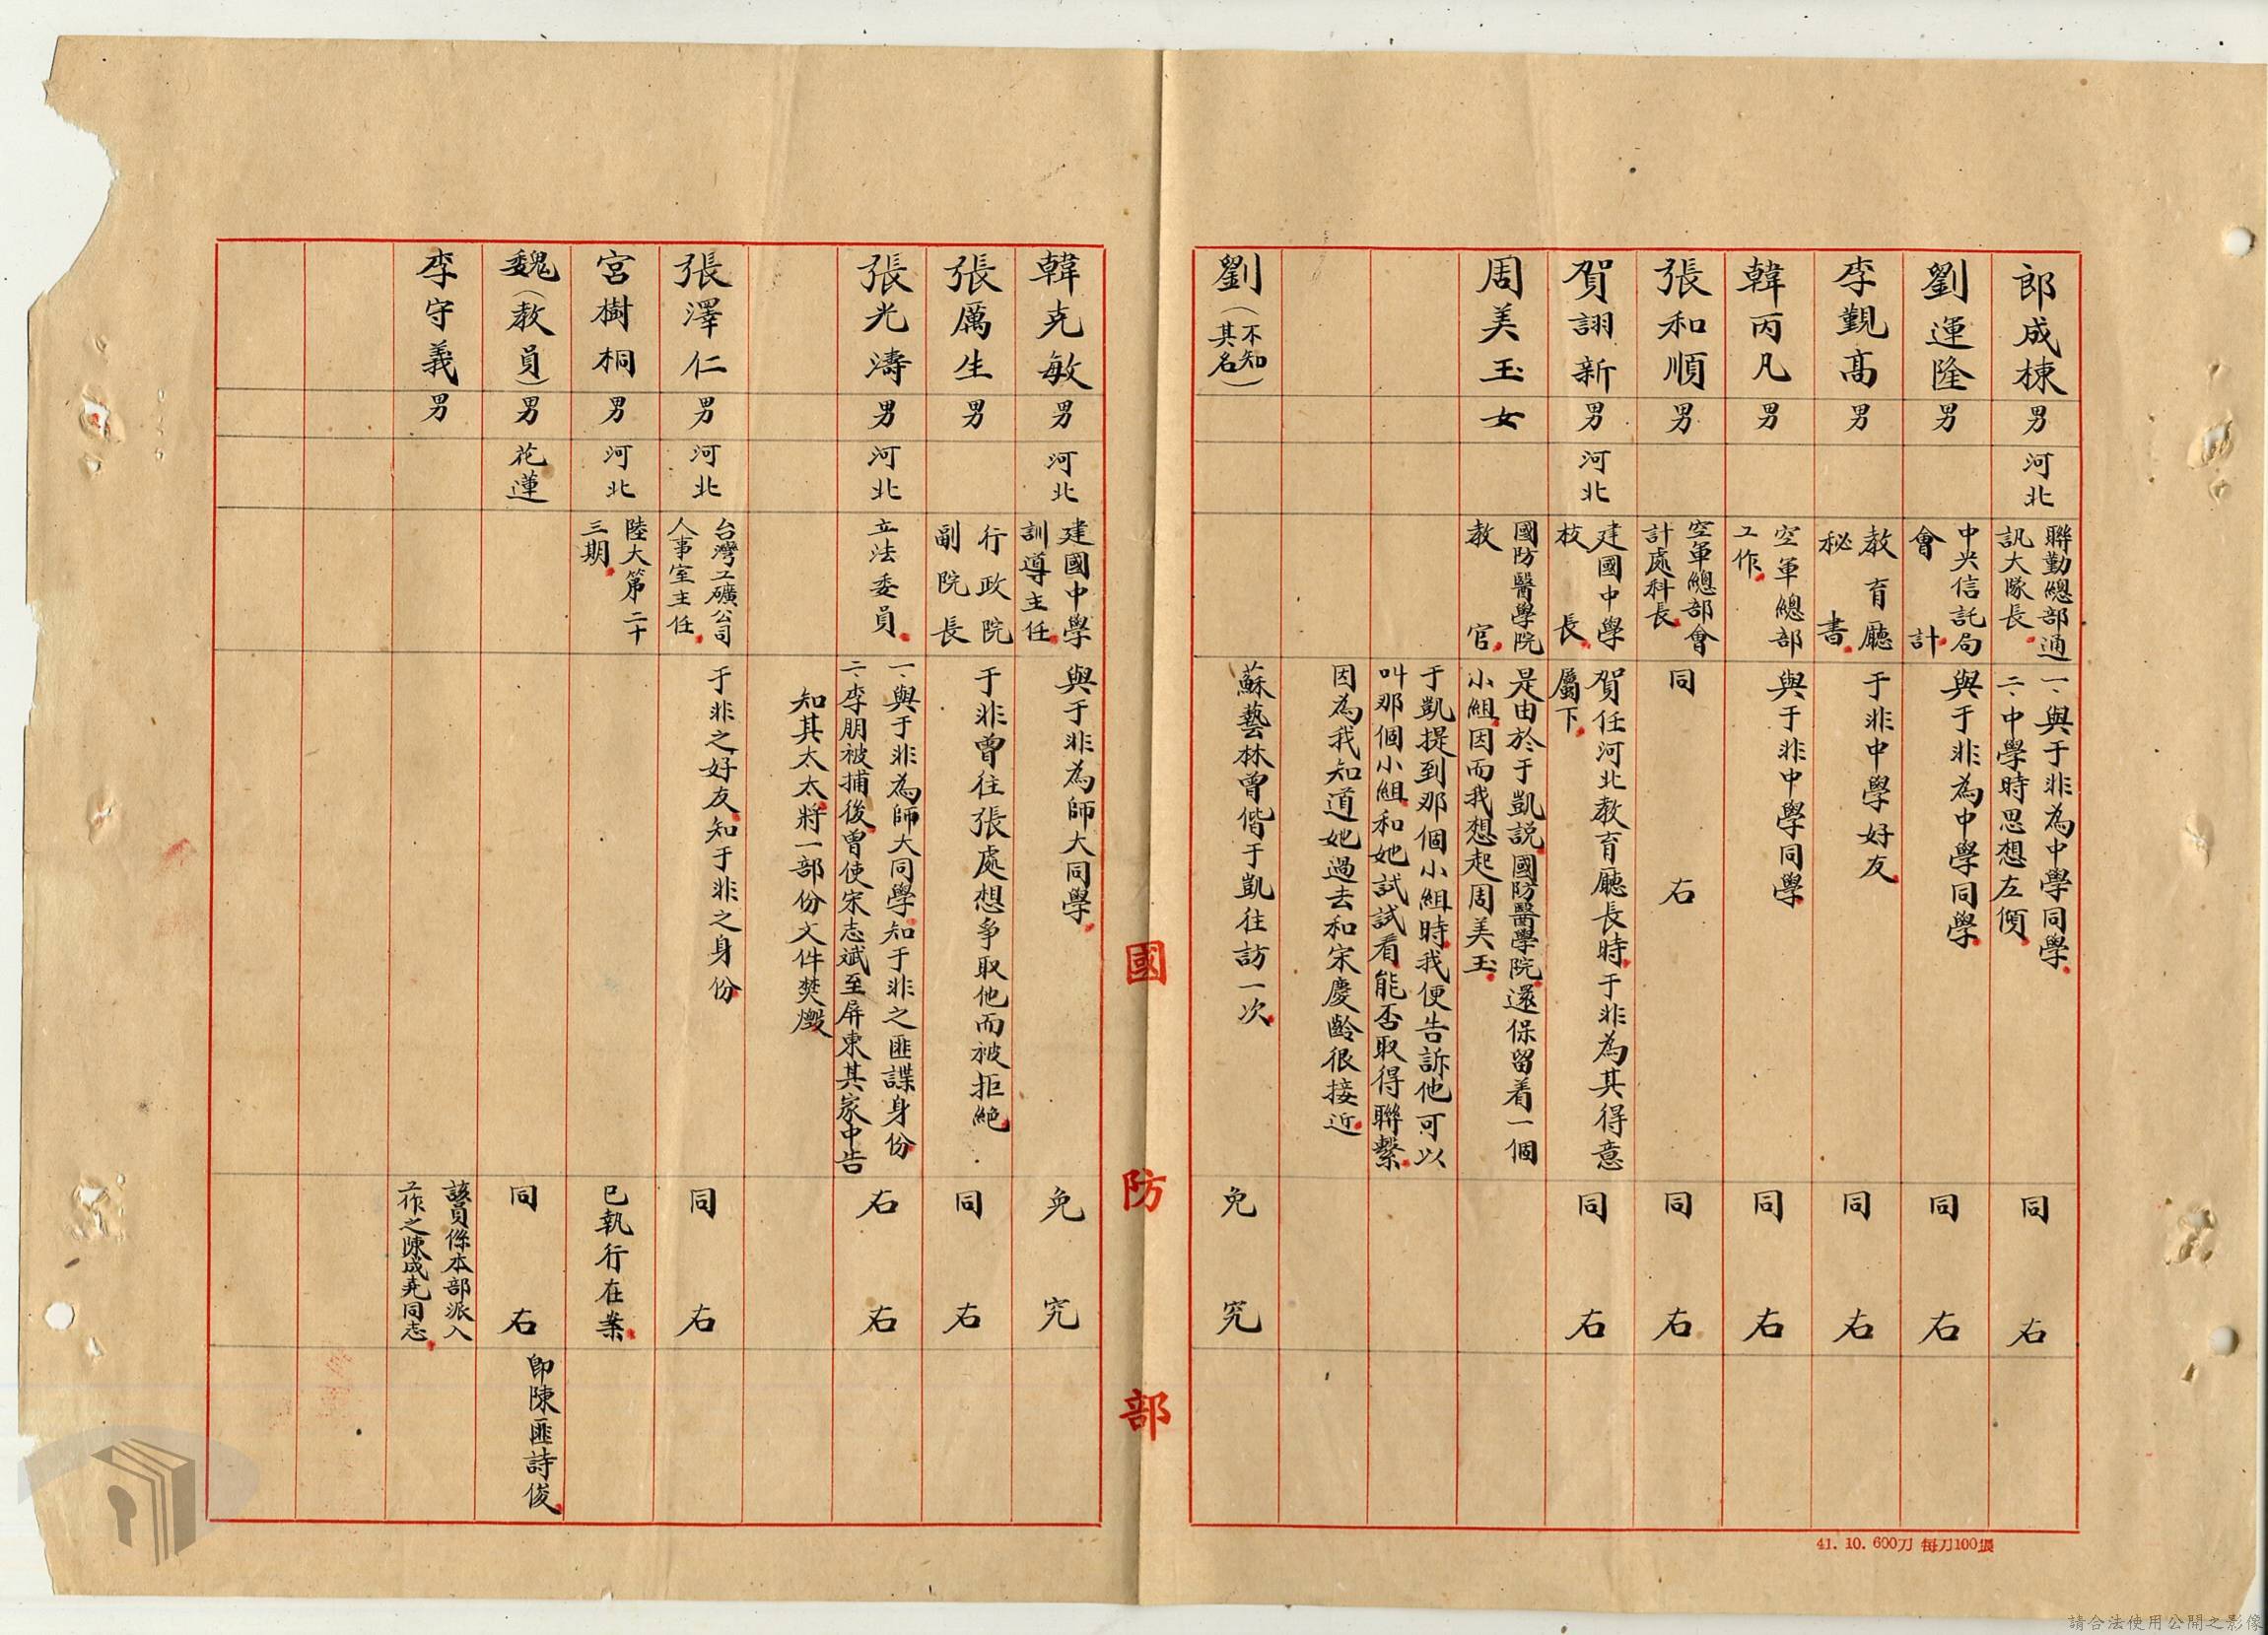 郎成棟
男
河北
聯勤總部通
訊大隊長
一、與于非為中學同學
二、中學時思想左傾
同右
劉運隆
男
中央信託局
會計
與于非為中學同學
同右
李覲高
男
教育廳
秘書
于非中學好友
同右
韓丙凡
男
空軍總部
工作
與于非中學同學
同右
張和順
男
空軍總部會
計處科長
同右
同右
賀翊新
男
河北
建國中學
校長
賀任河北教育廳長時于非為其得意
屬下
同右
周美玉
女
國防醫學院
教官
是由於于凱説國防醫學院還保留着一個
小組因而我想起周美玉
于凱提到那個小組時我便告訴他可以
叫那個小組和她試試看能否取得聯繫
因為我知道她過去和宋慶齡很接近
劉(不知
其名)
蘇藝林曾偕于凱往訪一次
免究
國防部
韓克敏
男
河北
建國中學
訓導主任
與于非為師大同學
免究
張厲生
男
行政院
副院長
于非曾往張處想爭取他而被拒絕
同右
張光濤
男
河北
立法委員
一、與于非為師大同學知于非之匪諜身份
二、李朋被捕後曾使宋志斌至屏東其家中告
知其太太將一部份文件焚燬
右右
張澤仁
男
河北
台灣工礦公司
人事室主任
于非之好友知于非之身份
同右
宮樹桐
男
河北
陸大第二十
三期
已執行在案
魏(教員)
男
花蓮
同右
即陳匪詩俊
李守義
男
該員係本部派入
工作之陳成堯同志
41. 10. 600刀 每刀100張
請合法使用公開之影像